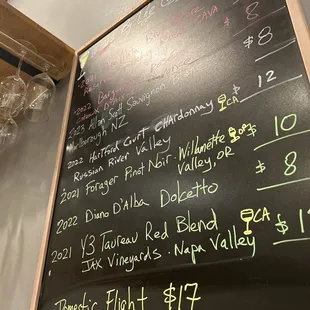 AVA
$
8
2021
Valley
$ 8
2022
2023 Allan Scott Sauvignon
Marlborough NZ
$ 12
2022 Hartford Court Chardonnay CA
Russian River Valley
2021 Forager Pinot Noir. Willamette OR $ 10
Valley, OR
$ 8
2022 Diano D'Alba Dolcetto
2021 Y3 Taureau Red Blend CA $ 1
JAX Vineyards. Napa Valley
Domestic Flight $17